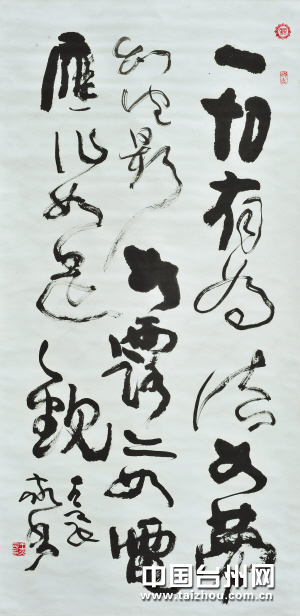 一切有為法如夢
幻泡影如露亦如電
應作如是觀
中国台州网
www.taizhou.com